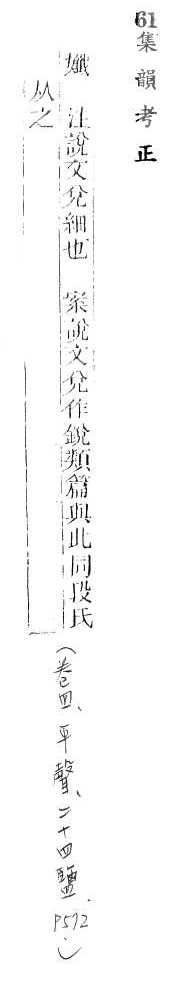 61集韻考正
孅 注說文兌細也 案說文兌作銳類篇與此同段氏
从之
(卷四、平聲、二十四鹽、P572)